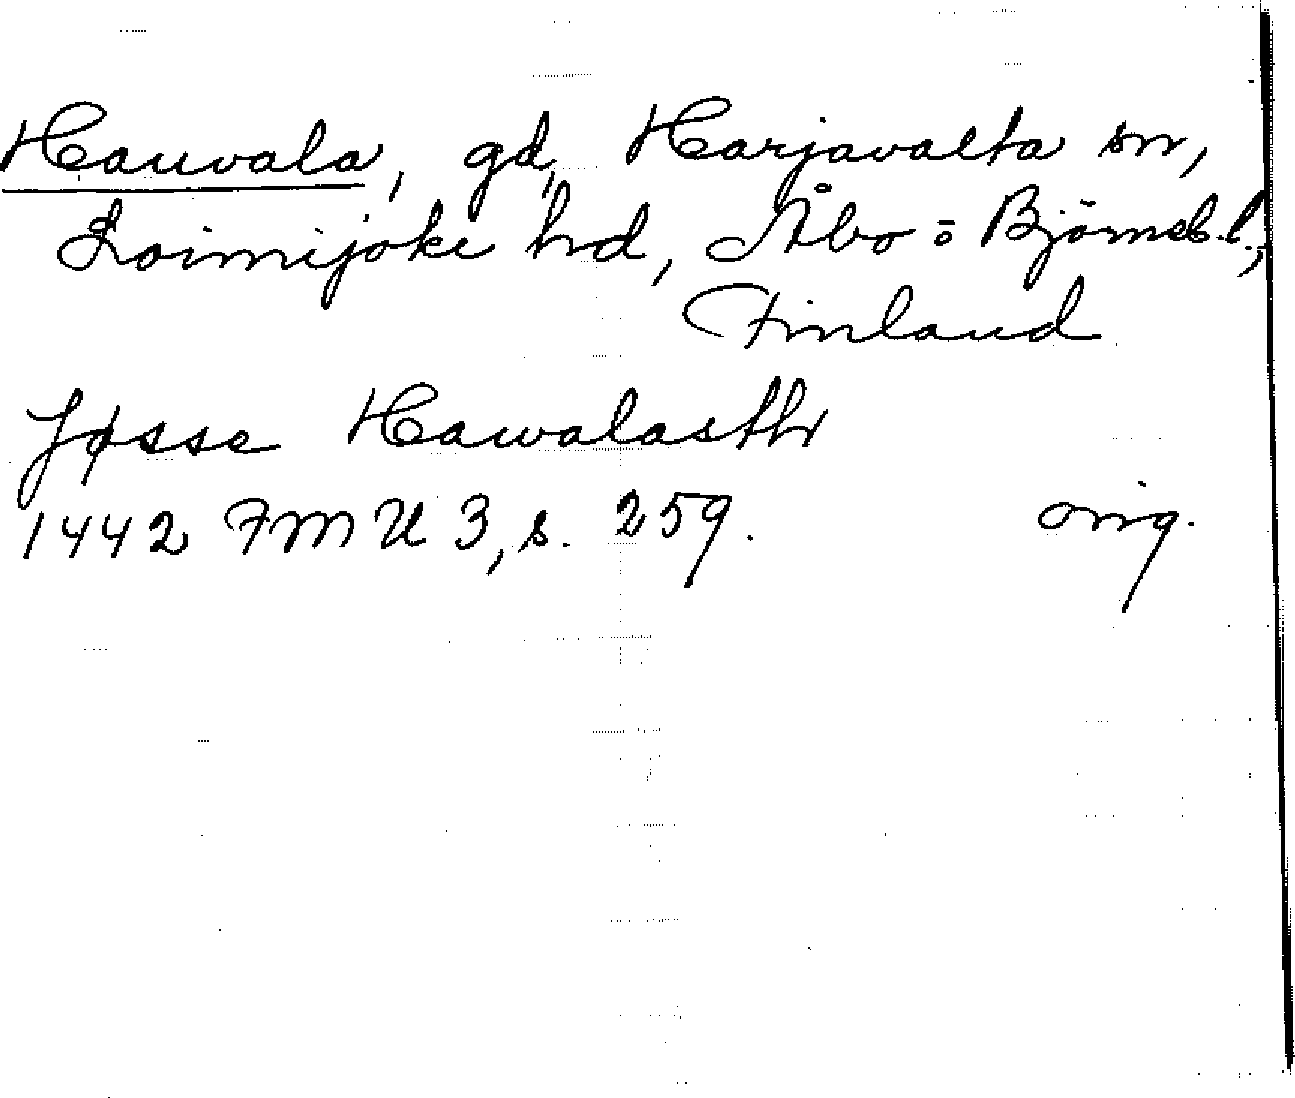 Hauvala, gd, Harjavalta sn,
Loimijoki hd, Åbo o Björneb. l.,
Finland
Jøsse Hawalasth
1442 FMU 3, s. 259. orig.